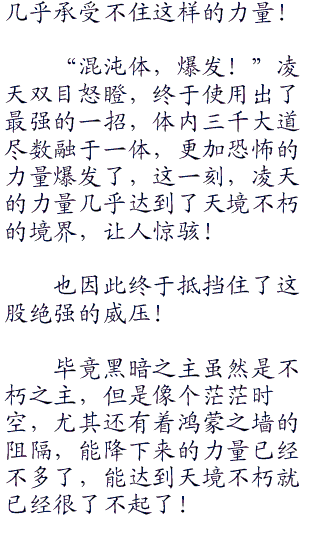 几乎承受不住这样的力量！
“混沌体，爆发！”凌
天双目怒瞪，终于使用出了
最强的一招，体内三千大道
尽数融于一体，更加恐怖的
力量爆发了，这一刻，凌天
的力量几乎达到了天境不朽
的境界，让人惊骇！
也因此终于抵挡住了这
股绝强的威压！
毕竟黑暗之主虽然是不
朽之主，但是像个茫茫时
空，尤其还有着鸿蒙之墙的
阻隔，能降下来的力量已经
不多了，能达到天境不朽就
已经很了不起了！